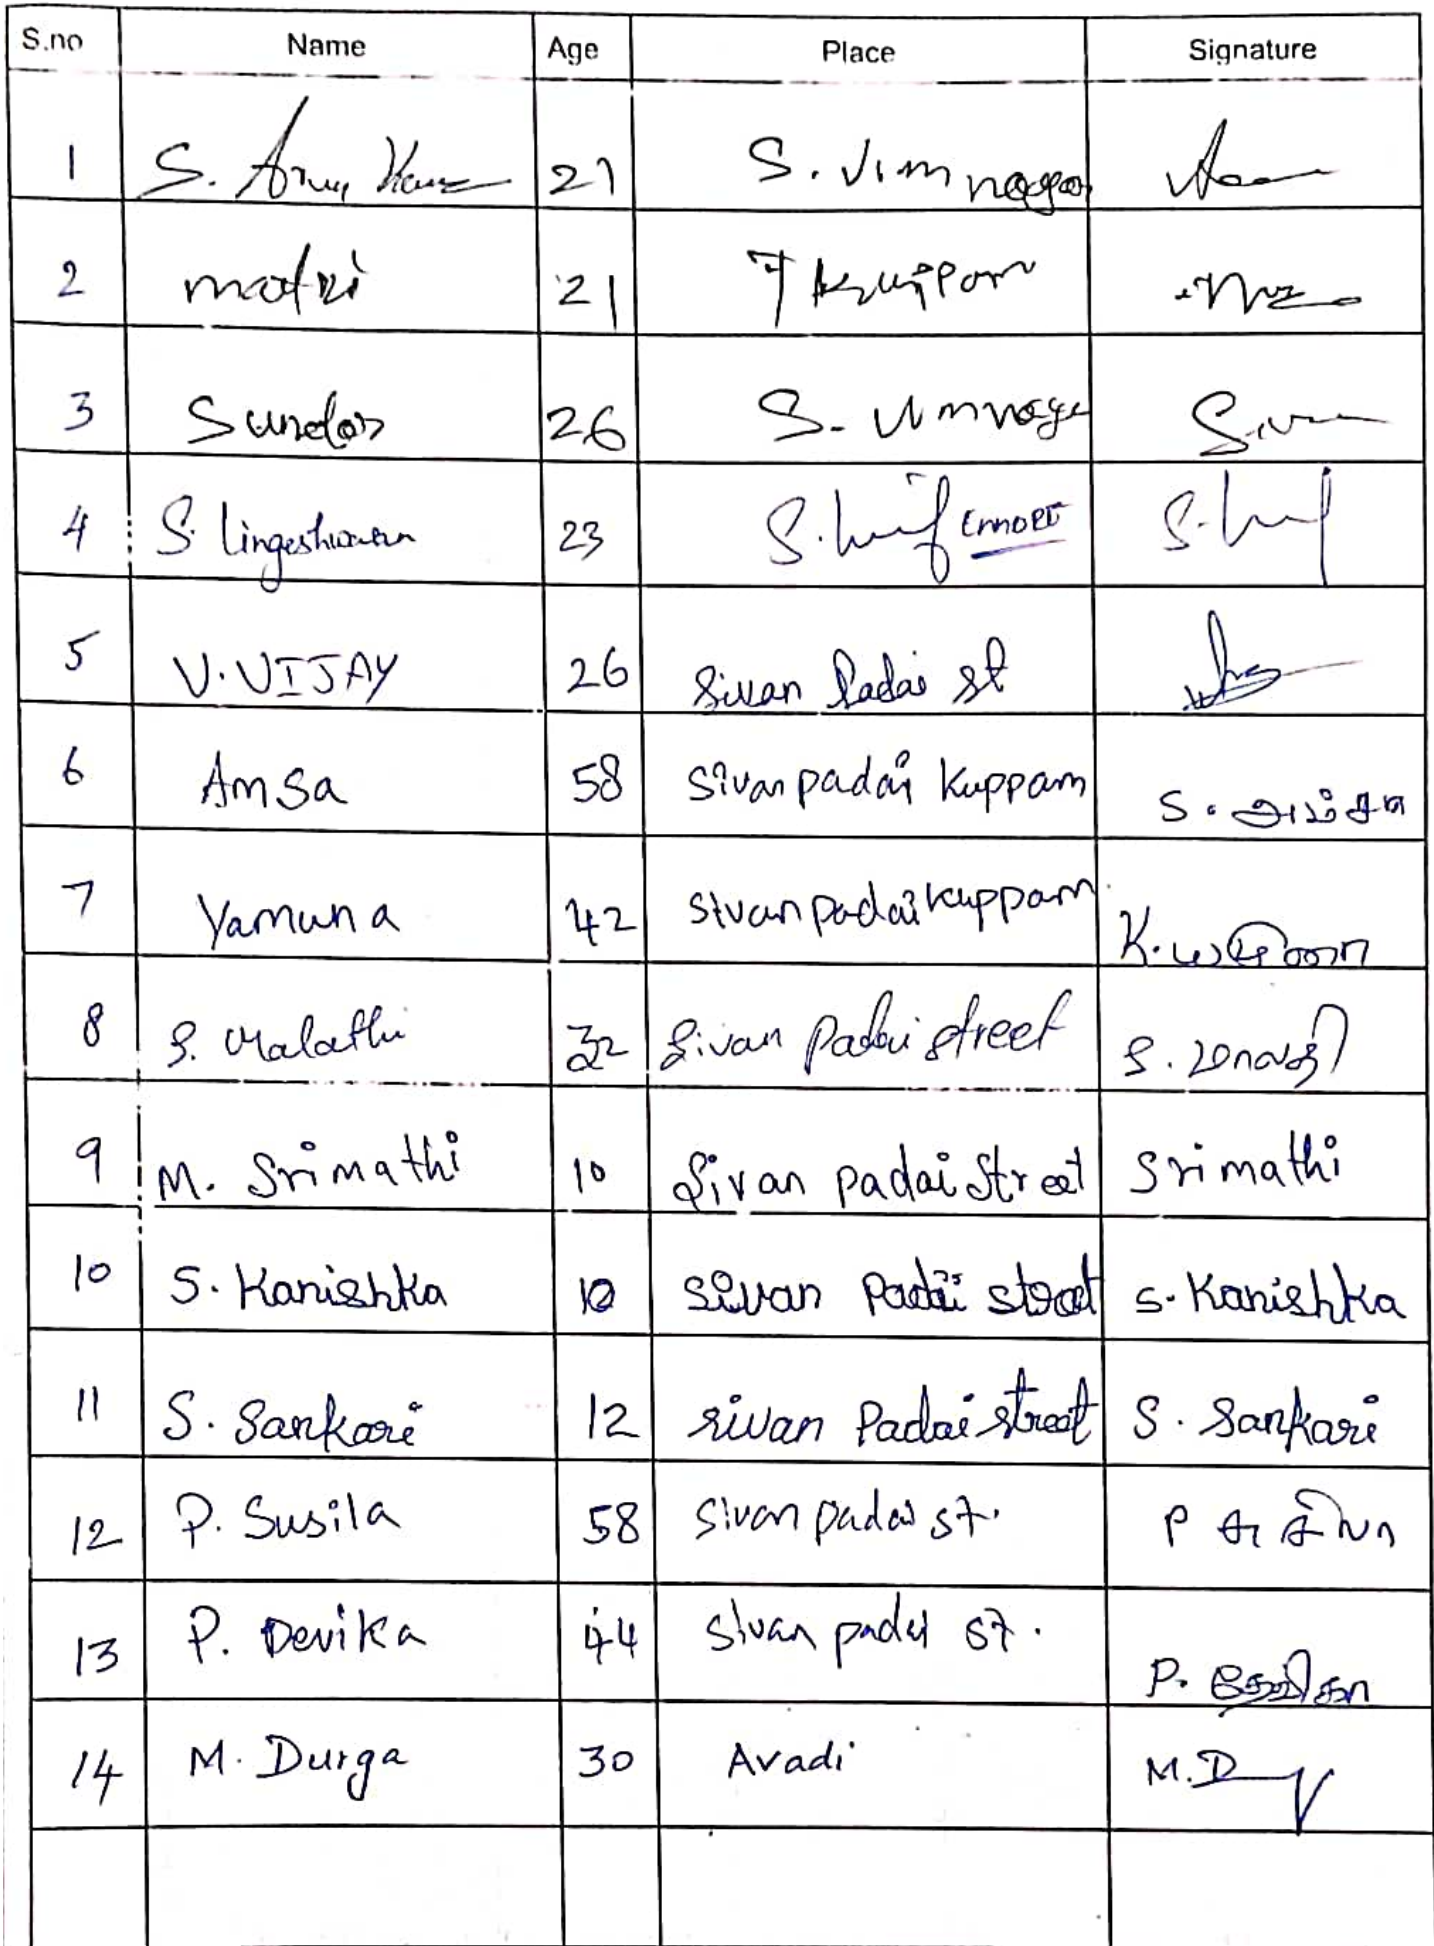 S.no Name Age Place Signature
1 S. Arun Kumar 21 S. V.m nagar
2 mathi 21 Kuppam
3 Sundar 26 S. V m nagar
4 S. Lingeshwaran 23 Ennore
5 V. VIJAY 26 Sivan Padai st
6 Amsa 58 Sivan padai Kuppam S. அம்சா
7 Yamuna 42 Sivan padai kuppam K. யமுனா
8 S. Malathi 32 Sivan Padai street S. மாலதி
9 M. Srimathi 10 Sivan padai Street Srimathi
10 S. Kanishka 10 Sivan Padai street S. Kanishka
11 S. Sankari 12 Sivan Padai street S. Sankari
12 P. Susila 58 Sivan padai st. P சுசிலா
13 P. Devika 44 Sivan padai st. P. தேவிகா
14 M. Durga 30 Avadi M. D